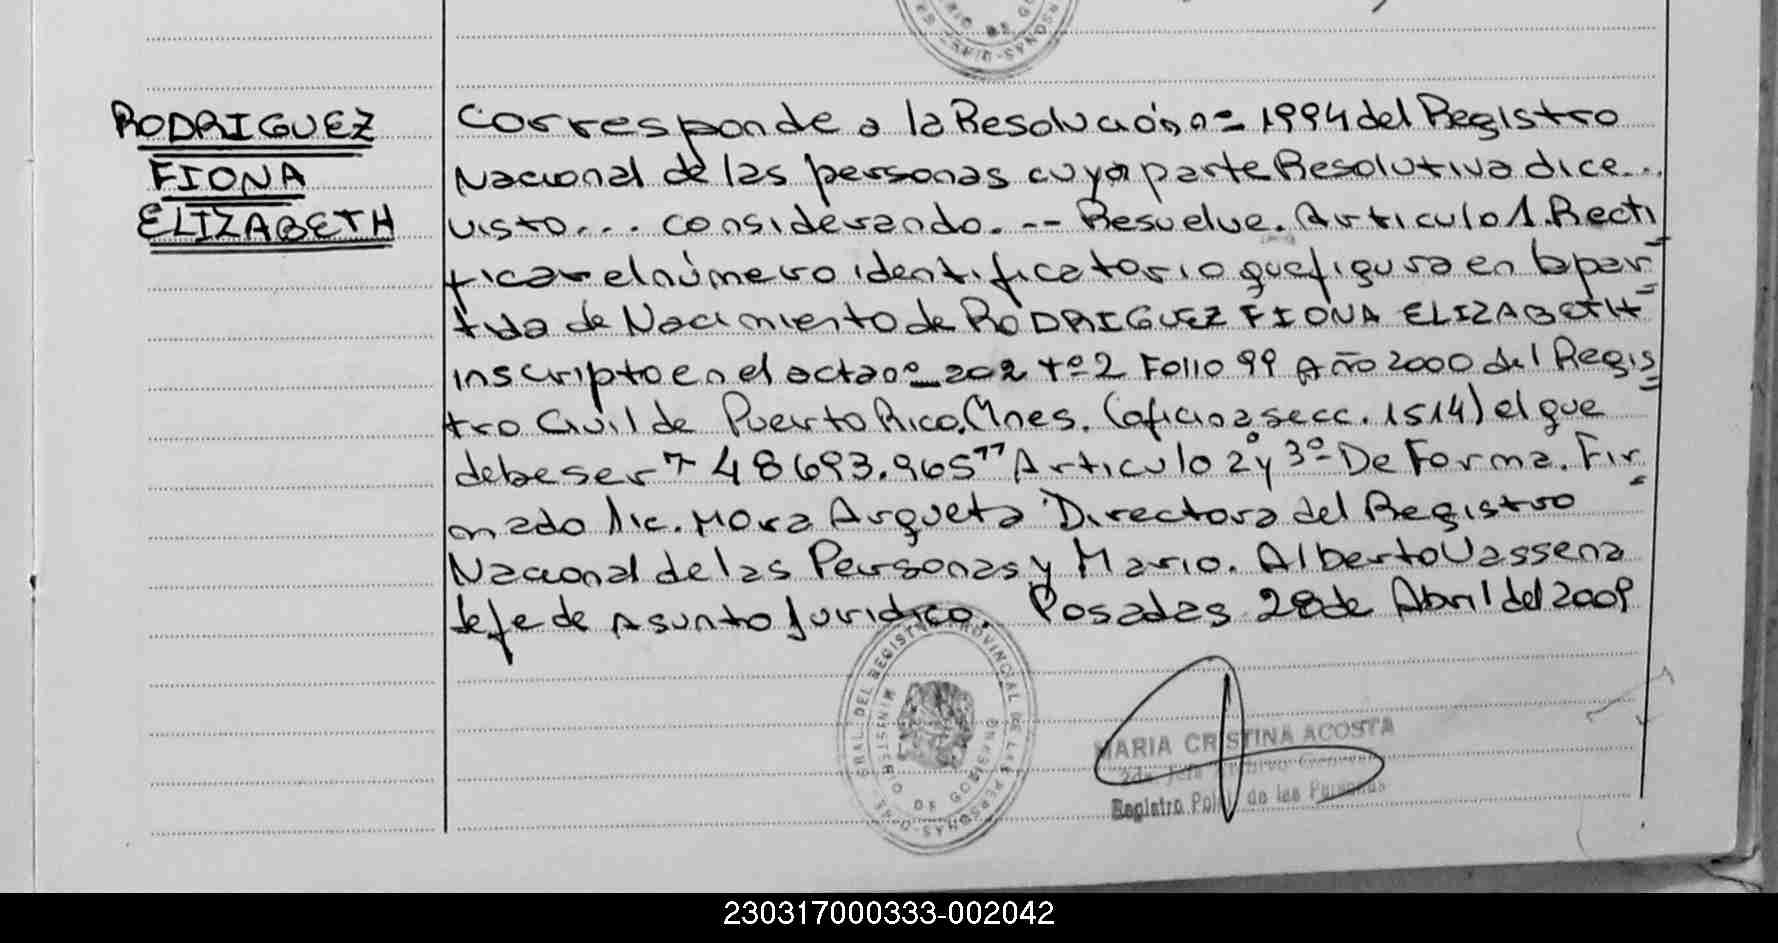 RODRIGUEZ
FIONA
ELIZABETH
Corresponde a la Resolución nº 1994 del Registro
Nacional de las personas cuya parte Resolutiva dice...
visto... considerando. -- Resuelve. Articulo 1. Recti
ficar el número identificatorio que figura en la par
tida de Nacimiento de RODRIGUEZ FIONA ELIZABETH
inscripto en el acta nº 202 tº 2 Folio 99 Año 2000 del Regis
tro Civil de Puerto Rico. Mnes. (oficina secc. 1514) el que
debe ser "48693.965" Articulo 2º y 3º De Forma. Fir
mado lic. Mora Argueta Directora del Registro
Nacional de las Personas y Mario. Alberto Vassena
Jefe de Asunto Juridico. Posadas 28 de Abril del 2009
GRAL. DEL REGISTRO PROVINCIAL DE LAS PERSONAS
MINISTERIO DE GOBIERNO
MARIA CRISTINA ACOSTA
2da Jefe Archivo
Registro de las Personas
230317000333-002042